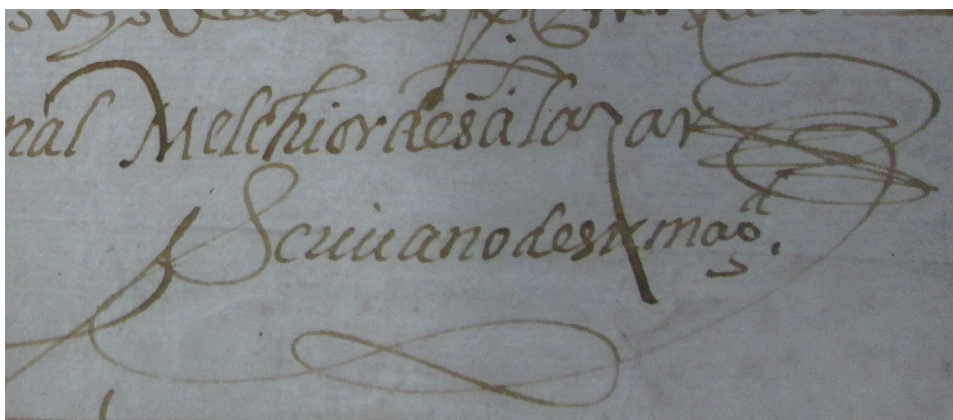 nal Melchior desalazar
Scriuano desu magd.